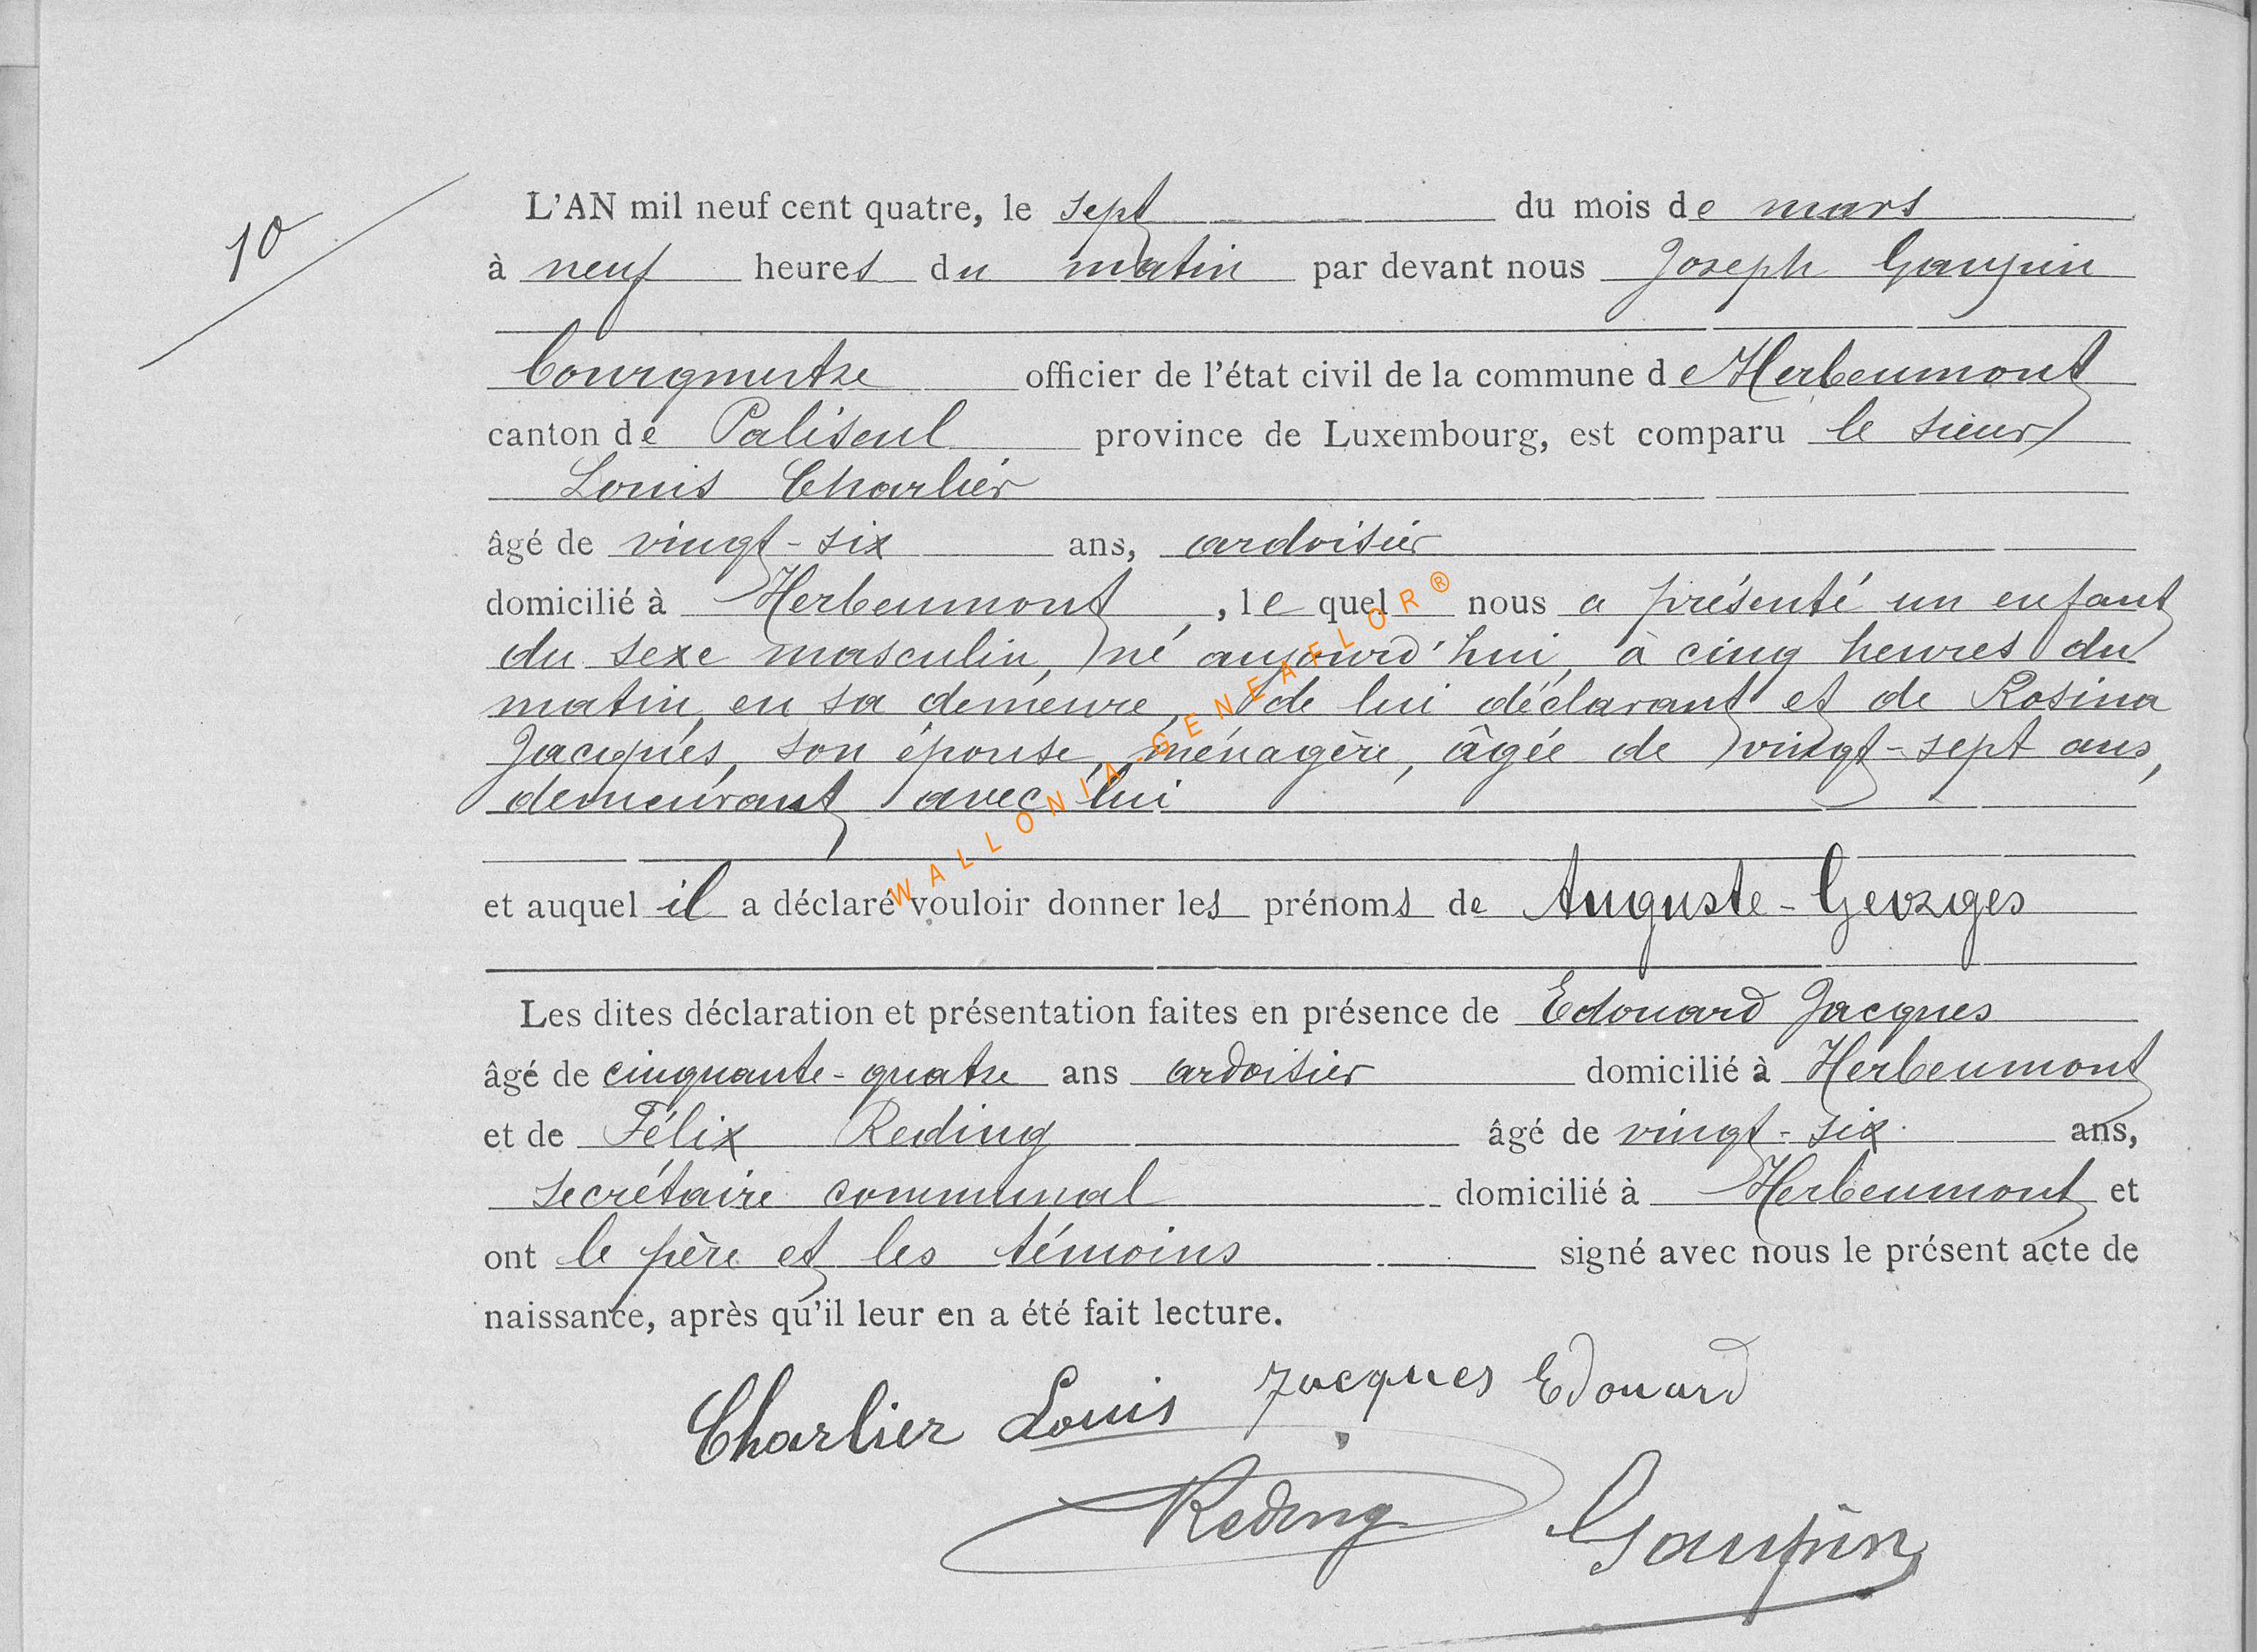 10
L'AN mil neuf cent quatre, le sept du mois de mars
à neuf heures du matin par devant nous Joseph Gaupin
bourgmestre officier de l'état civil de la commune de Herbeumont
canton de Paliseul province de Luxembourg, est comparu le sieur
Louis Charlier
âgé de vingt-six ans, ardoisier
domicilié à Herbeumont, lequel nous a présenté un enfant
du sexe masculin, né aujourd'hui, à cinq heures du
matin, en sa demeure, de lui déclarant et de Rosina
Jacques, son épouse, ménagère, âgée de vingt-sept ans,
demeurant avec lui
WALLONIA-GENEAFLOR®
et auquel il a déclaré vouloir donner les prénoms de Auguste-Georges
Les dites déclaration et présentation faites en présence de Edouard Jacques
âgé de cinquante-quatre ans ardoisier domicilié à Herbeumont
et de Félix Reding âgé de vingt-six ans,
secrétaire communal domicilié à Herbeumont et
ont le père et les témoins signé avec nous le présent acte de
naissance, après qu'il leur en a été fait lecture.
Charlier Louis Jacques Edouard
Reding Gaupin